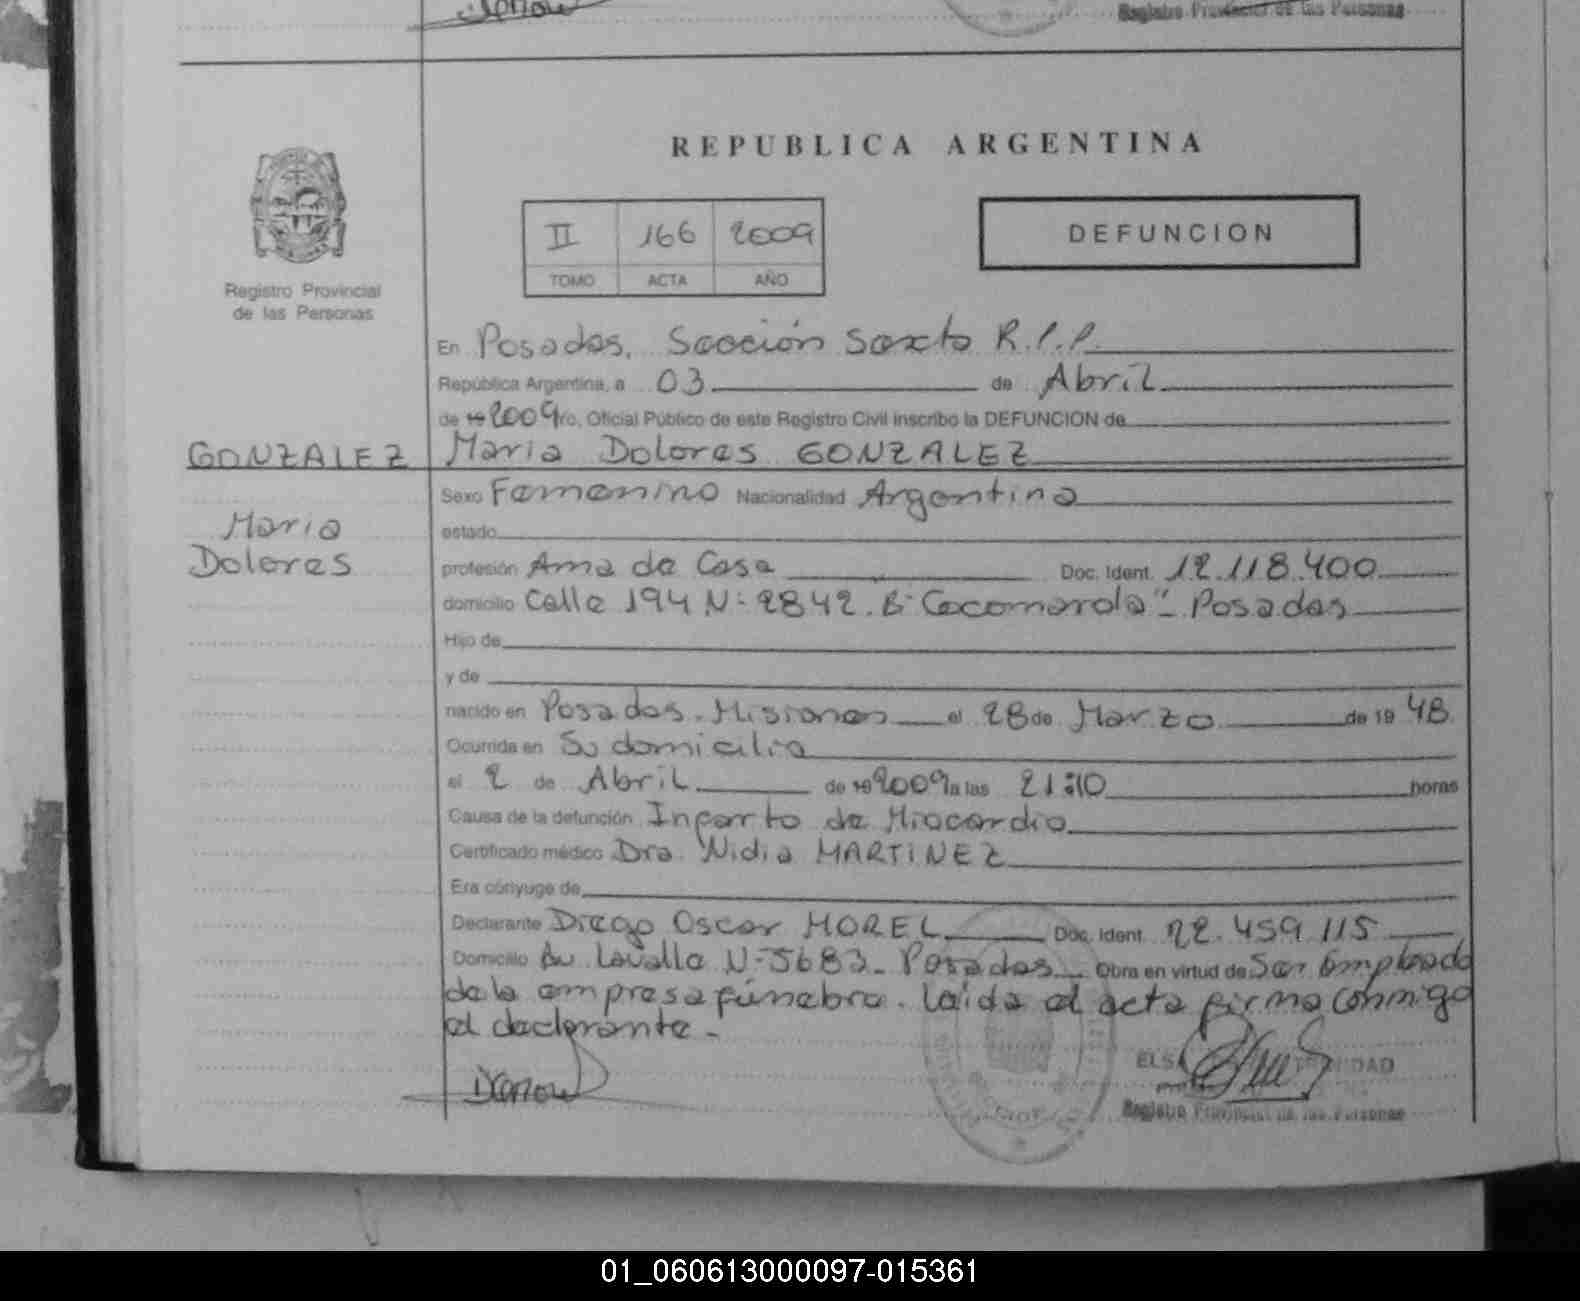 Registro Provincial de las Personas
REPUBLICA ARGENTINA
II 166 2009
TOMO ACTA AÑO
DEFUNCION
Registro Provincial
de las Personas
En Posadas, Sección Sexta R.P.P.
República Argentina, a 03 de Abril
de 19 2009 ro, Oficial Público de este Registro Civil inscribo la DEFUNCION de
GONZALEZ
Maria Dolores GONZALEZ
Maria
Dolores
Sexo Femenino Nacionalidad Argentina
estado
profesión Ama de Casa Doc. Ident. 12.118.400
domicilio Calle 194 N: 2842. Bº Cocomarola"- Posadas
Hijo de
y de
nacido en Posadas. Misiones el 28 de Marzo de 19 48.
Ocurrida en Su domicilio
el 2 de Abril de 19 2009 a las 21:10 horas
Causa de la defunción Infarto de Miocardio
Certificado médico Dra. Nidia MARTINEZ
Era cónyuge de
Declarante Diego Oscar MOREL Doc. Ident. 22.459.115
Domicilio Av Lavalle N-5683- Posadas Obra en virtud de Ser Empleado
de la empresa fúnebre. Leída el acta firma conmigo
el declarante-
ELSA TRINIDAD
Registro Provincial de las Personas
01_060613000097-015361